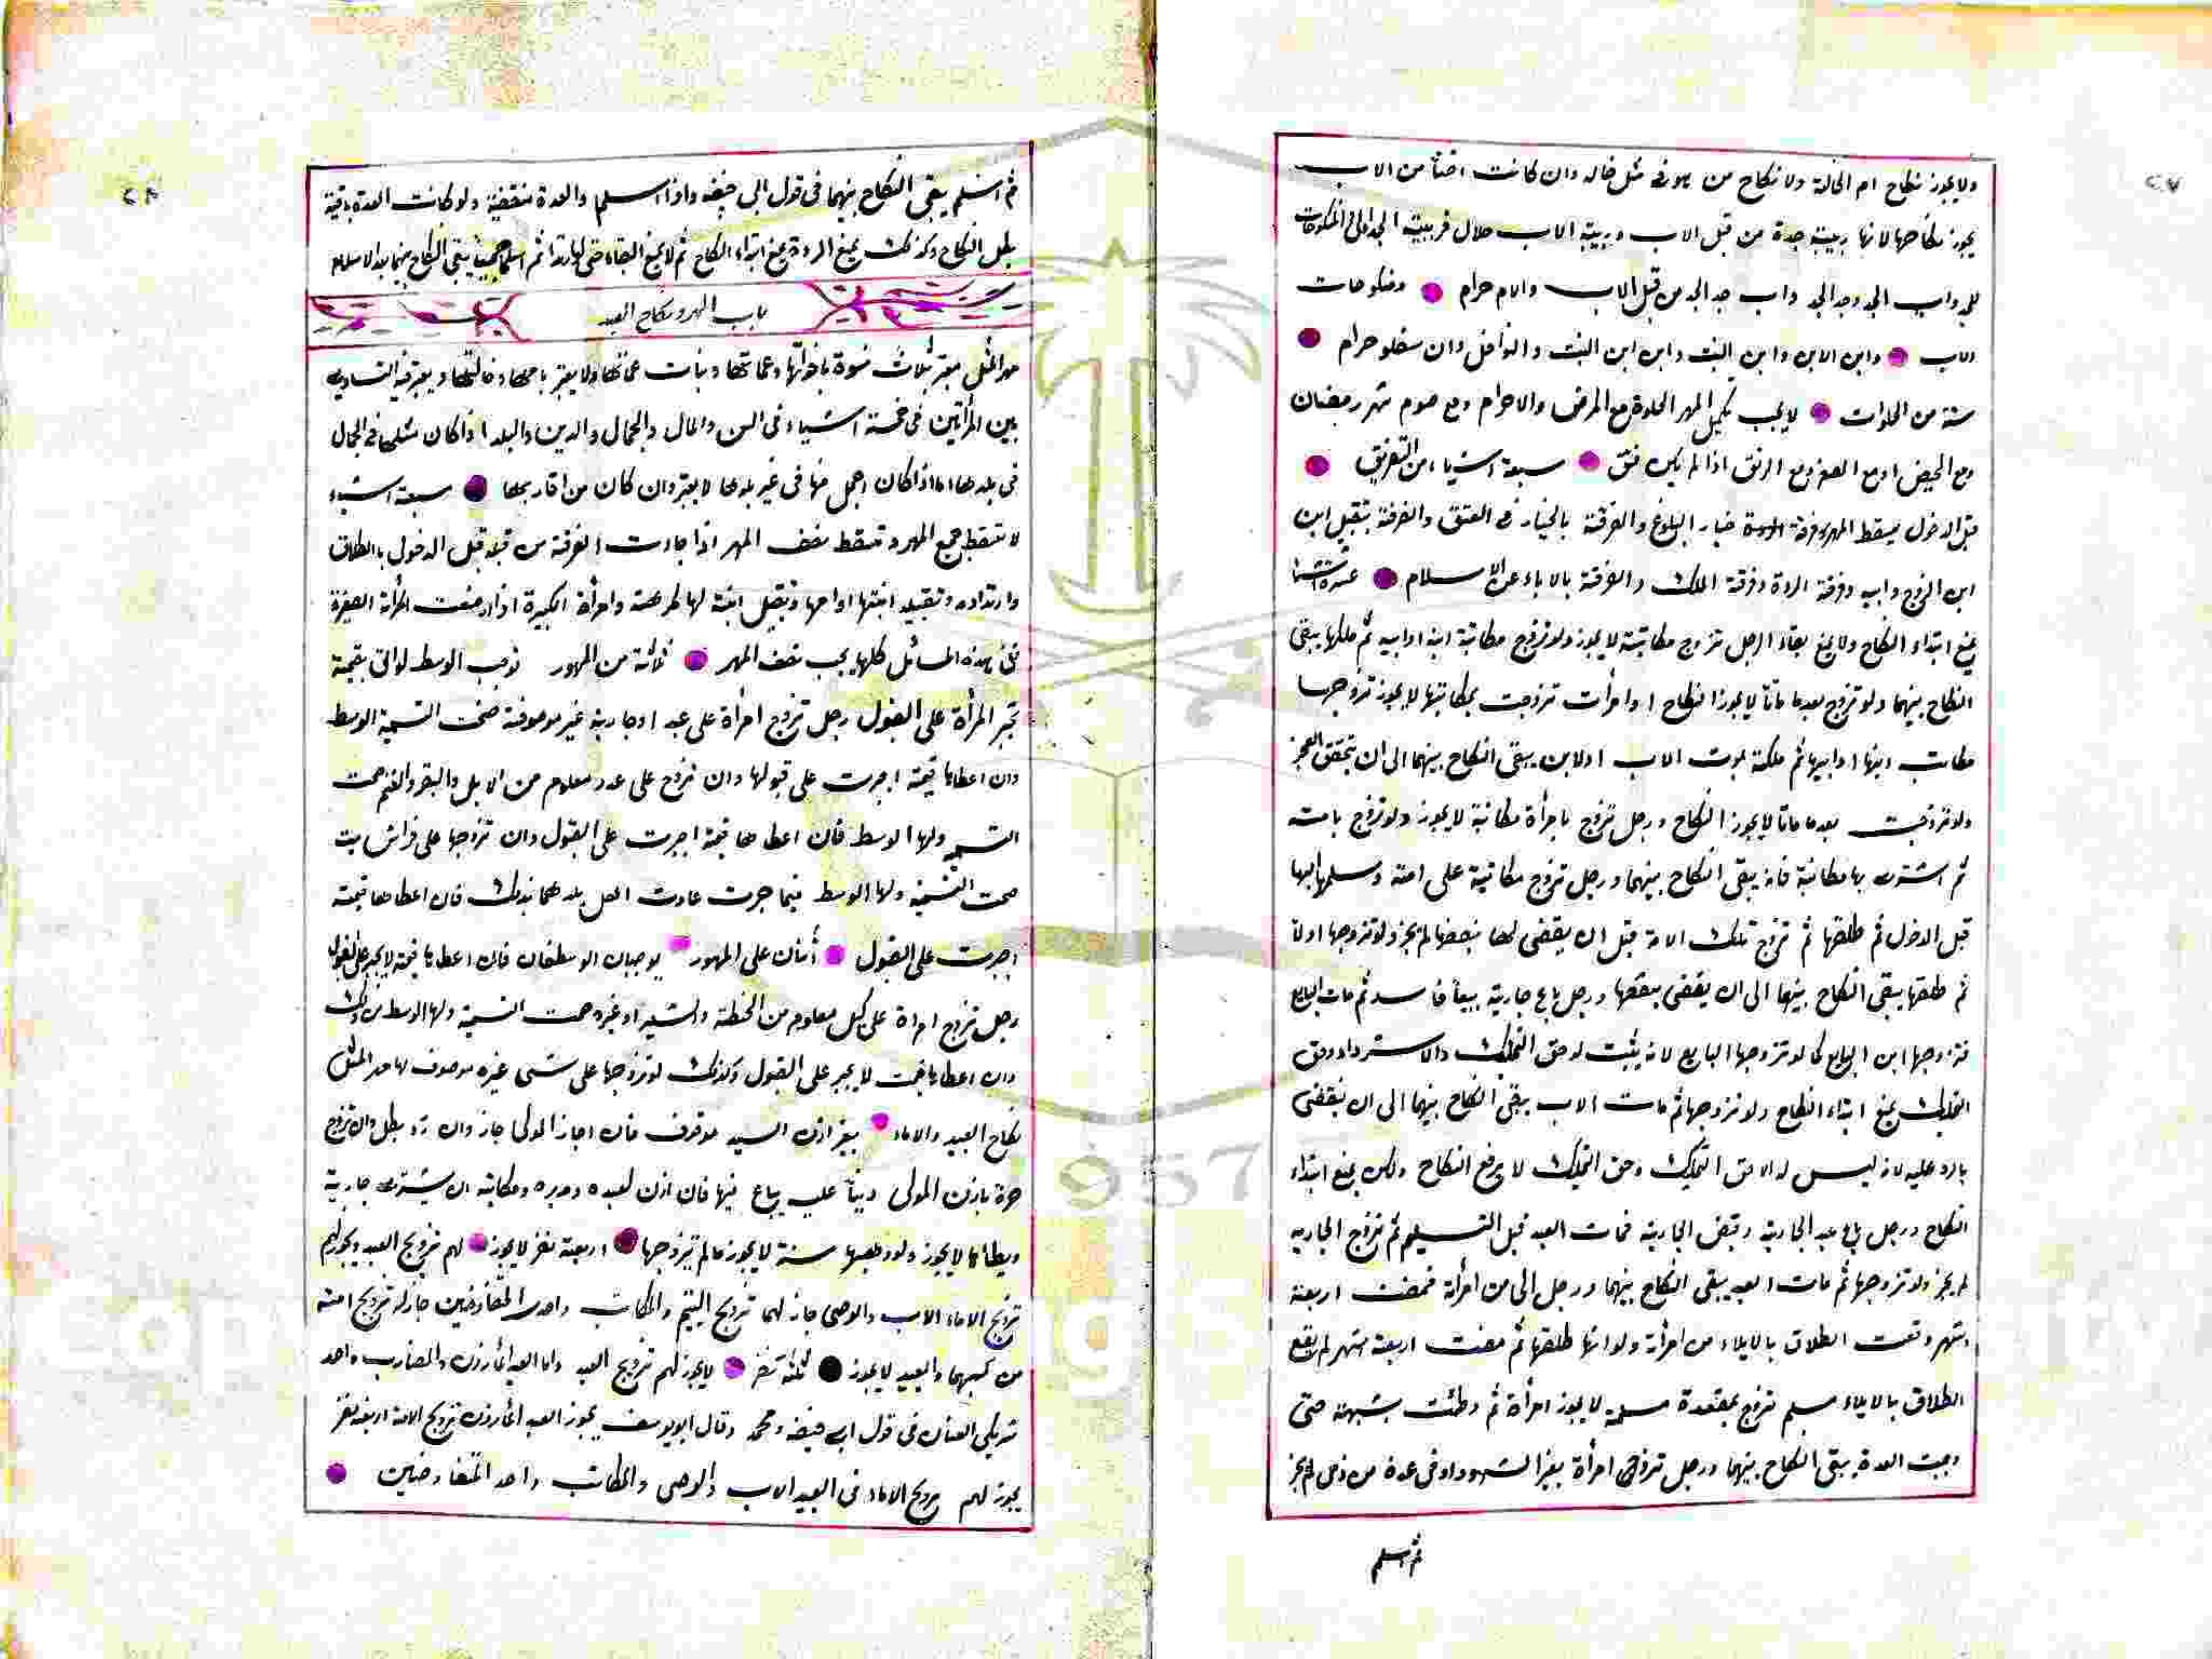 ٢٧
ولا يجوز نكاح ام الخالة ولا نكاح من هو في مثل خاله وان كانت اختا من الاب
يجوز نكاحها لانها ربيبة جدة من قبل الاب وربيبة الاب حلال فربيبة الجد اولى المنكوحات
للجد واب الجد وجد الجد واب جد الجد من قبل الاب والام حرام ومنكوحات
الاب وابن الابن وابن البنت وابن ابن البنت والنوافل وان سفلو حرام
ستة من الخلوات لا يجب تكميل المهر الخلوة مع المرض والاحرام ومع صوم شهر رمضان
ومع الحيض او مع الصغر ومع الرتق اذا لم يكن فتق سبعة اشياء من التفريق
قبل الدخول يسقط المهر وفرقة خيار البلوغ والفرقة بالخيار في العتق والفرقة بتقبيل ابن
ابن الزوج وابيه وفرقة الردة وفرقة الملك والفرقة بالاباء عن الاسلام عشرة اشياء
يمنع ابتداء النكاح ولا يمنع بقاء الرجل تزوج مكاتبته لا يجوز ولو تزوج مكاتبة ابنه او ابيه ثم ملكها يبقى
النكاح بينهما ولو تزوج بعد ما ماتا لا يجوز النكاح او امرأت تزوجت بمكاتبها لا يجوز تزوجها
مكاتب ابنها او ابيها ثم ملكته بموت الاب او الابن يبقى النكاح بينهما الى ان يتحقق العجز
ولو تزوجت بعد ما ماتا لا يجوز النكاح ورجل تزوج بامرأة مكاتبة لا يجوز ولو تزوج بامته
ثم اشترى بها مكاتبة فانه يبقى النكاح بينهما ورجل تزوج مكاتبة على امته وسلمها اليها
قبل الدخول ثم طلقها ثم تزوج تلك الامة قبل ان يقضى لها بنصفها لم يجز ولو تزوجها اولا
ثم طلقها يبقى النكاح بينهما الى ان يقضى بنقضها ورجل باع جارية بيعا فاسد ثم مات البايع
فتزوجها ابن البايع كما لو تزوجها البايع لانه يثبت له حق التملك والاسترداد وحق
التملك يمنع ابتداء النكاح ولو تزوجها ثم مات الاب يبقى النكاح بينهما الى ان ينقضى
بالرد عليه لانه ليس له الا حق التملك وحق التملك لا يرفع النكاح ولكن يمنع ابتداء
النكاح ورجل باع عبد الجارية وقبض الجارية فمات العبد قبل التسليم ثم تزوج الجاريه
لم يجز ولو تزوجها ثم مات العبد يبقى النكاح بينهما ورجل الى من امرأته فمضت اربعة
اشهر وقعت الطلاق بالايلاء من امرأته ولو انها طلقها ثم مضت اربعة اشهر لم يقع
الطلاق بالايلاء مسلم تزوج بمعتدة مسلم لا يجوز امرأة ثم وطئت بشبهة حتى
وجبت العدة يبقى النكاح بينهما ورجل تزوج امرأة بغير الشهود او في عدة من ذمى لم يجز
ثم اسلم
٢٨
ثم اسلم يبقى النكاح بينهما في قول ابى حنيفه واذا اسلم والعدة منقضية ولو كانت العدة باقية
بطل النكاح وكذلك يمنع الردة يمنع ابتداء النكاح ثم لا يمنع البقاء حتى لو ارتدا ثم اسلما جميعا يبقى النكاح بينهما
باب المهر ونكاح العبد
مهر المثل معتبر بثلاث نسوة باخواتها وعماتها وبنات عماتها ولا يعتبر بامها وخالتها ويعتبر فيه التساوى
بين المرأتين في خمسة اشياء في السن والمال والجمال والدين والبلد اذا كان مثلها في الجمال
في بلدها اما اذا كان اجمل منها في غير بلدها لا يعتبر وان كان من اقاربها سبعة اشياء
لا تسقط جميع المهر وتسقط نصف المهر اذا جاءت الفرقة من قبله قبل الدخول بالطلاق
وارتداده وتقبيله ابنتها او امها وتقبيل ابنة لها لمرضعة وامرأة الكبيرة اذا ارضعت المرأة الصغيرة
ففى هذه المسائل كلها يجب نصف المهر ثلاثة من المهور توجب الوسط لو اتى بقيمة
تجبر المرأة على القبول رجل تزوج امرأة على عبد او جارية غير موصوفة صحت التسمية الوسط
وان اعطاها قيمة اجبرت على قبولها وان تزوج على عدد معلوم من الابل والبقر والغنم صحت
التسمية ولها الوسط فان اعطاها قيمة اجبرت على القبول وان تزوجها على فراش بيت
صحت التسمية ولها الوسط فيما جرت عادت اهل بلدهما بذلك فان اعطاها قيمته
اجبرت على القبول اثنان على المهور يوجبان الوسط فان اعطاها قيمته لا يجبر على القبول
رجل تزوج امراة على كيل معلوم من الحنطة والشعير او غيره صحت التسمية ولها الوسط من ذلك
وان اعطاها قيمت لا يجبر على القبول وكذلك لو تزوجها على شىء غيره موصوف لها مهر المثل
نكاح العبيد والاماء بغير اذن السيد موقوف فان اجاز المولى جاز وان رد بطل وان تزوج
حرة باذن المولى دينا عليه يباع فيها فان اذن لعبده ومدبره ومكاتبه ان يشترى جارية
ويطاها لا يجوز ولو وهبها سنة لا يجوز مالم يتزوجها اربعة نفر لا يجوز لهم تزويج العبد ويجوز لهم
تزويج الاماء الاب والوصى جاز لهما تزويج اليتيم والمكاتب واحد المتفاوضين جاز له تزويج امته
من كسبهما والعبد لا يجوز ثلثة نفر لا يجوز لهم تزويج العبد واما العبد المأذون والمضارب واحد
شريكى العنان في قول ابى حنيفه ومحمد وقال ابو يوسف يجوز العبد المأذون تزويج الامة اربعة نفر
يجوز لهم تزويج الاماء في العبيد الاب والوصى والمكاتب واحد المتفاوضين